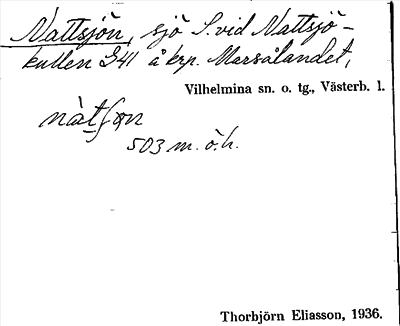 Nattsjön, sjö S. vid Nattsjö-
kullen å krp. Marsålandet,
Vilhelmina sn. o. tg., Västerb. l.
503 m. ö. h.
Thorbjörn Eliasson, 1936.